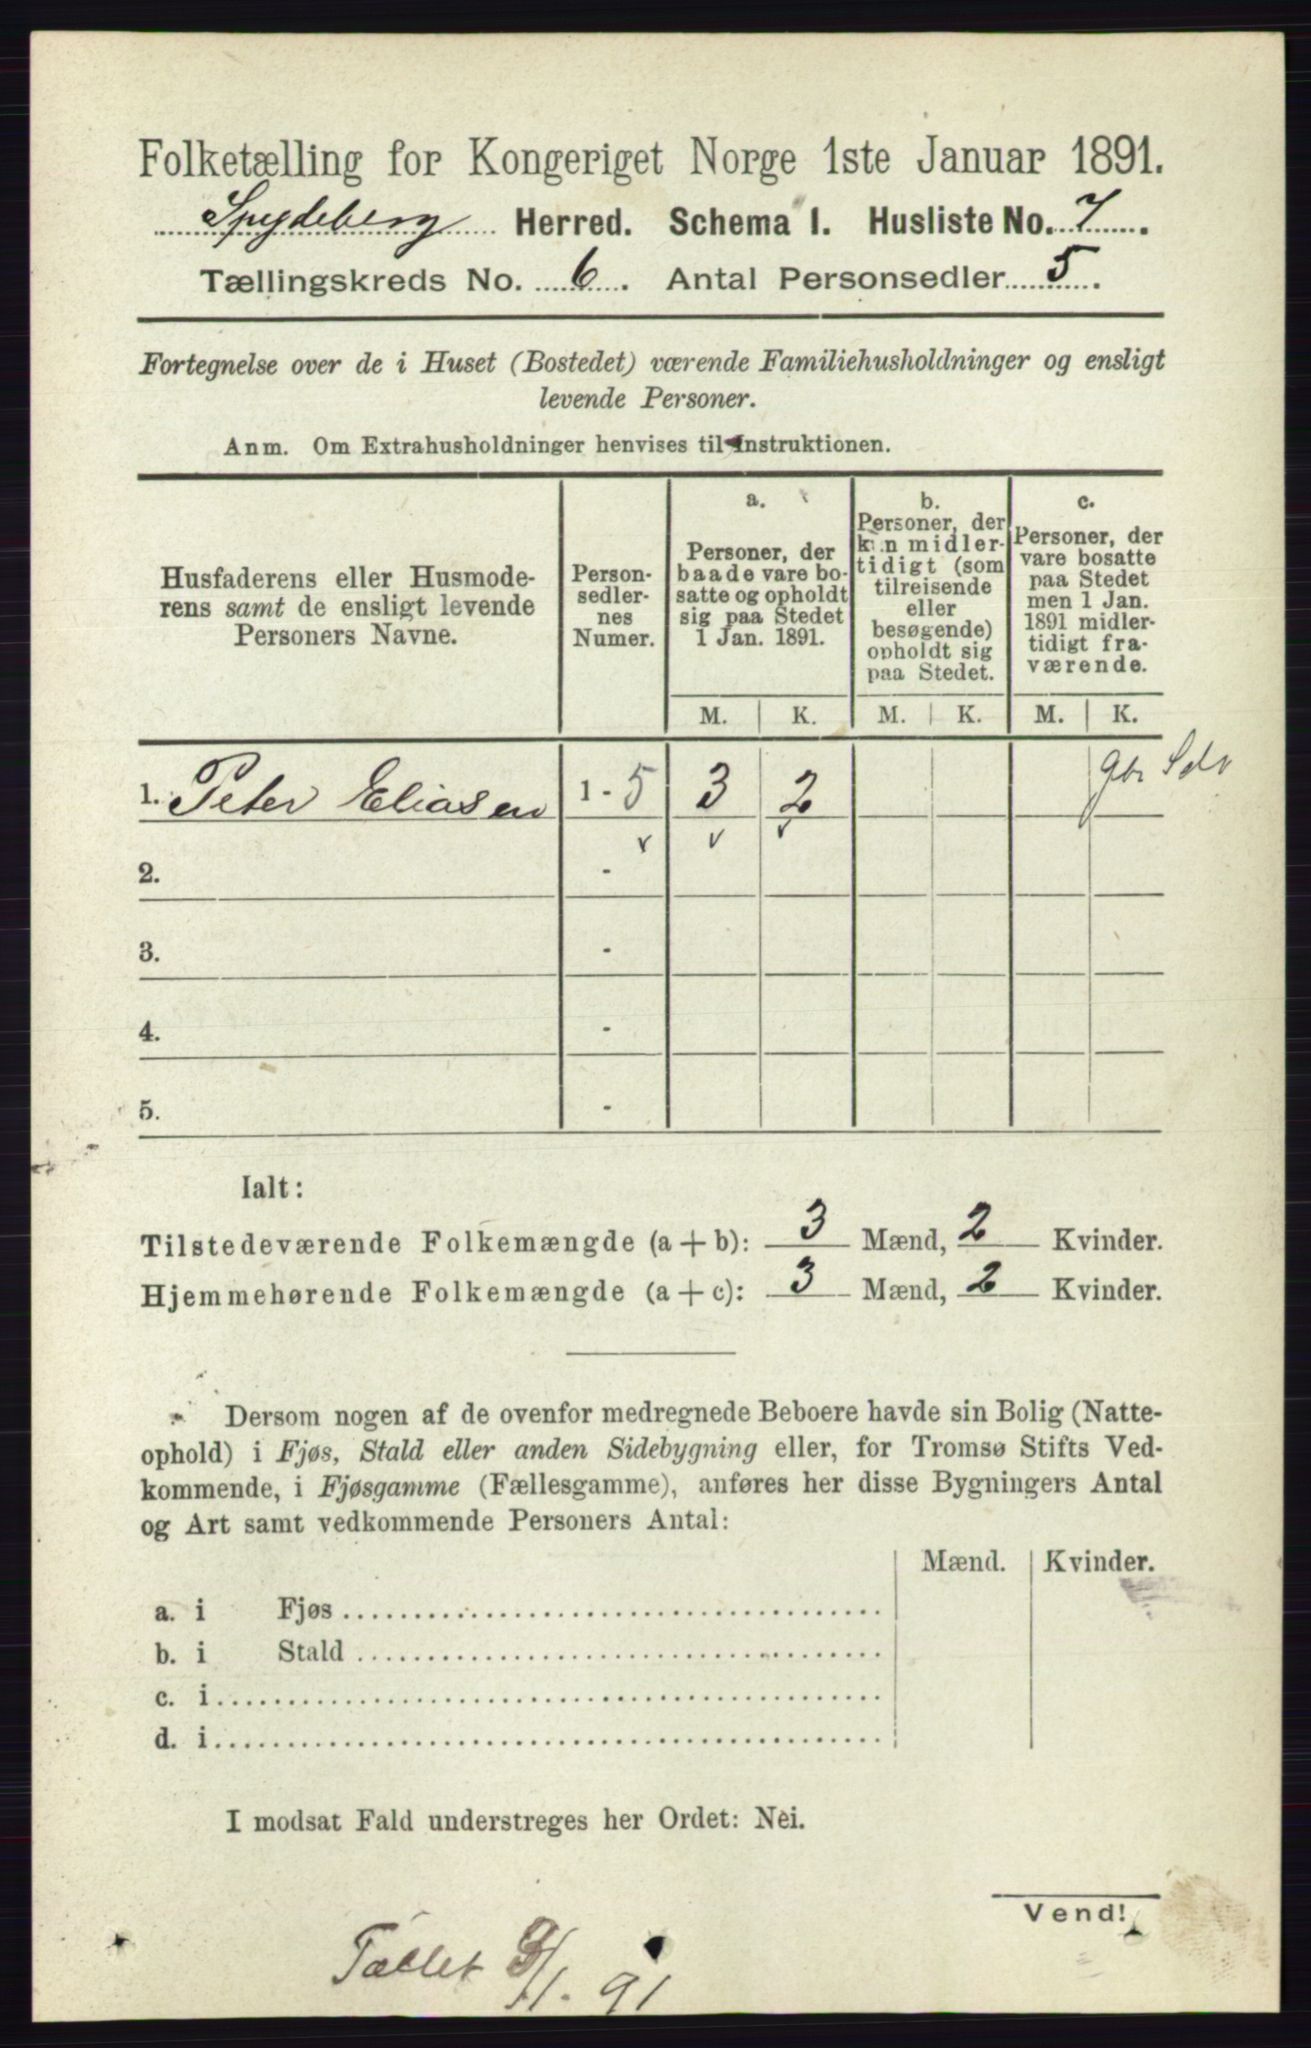 Folketælling for Kongeriget Norge 1ste Januar 1891.
Spydeberg Herred. Schema I. Husliste No. 7.
Tællingskreds No. 6. Antal Personsedler 5.
Fortegnelse over de i Huset (Bostedet) værende Familiehusholdninger og ensligt
levende Personer.
Anm. Om Extrahusholdninger henvises til Instruktionen.
Husfaderens eller Husmode-
rens samt de ensligt levende
Personers Navne.
Person-
sedler-
nes
Numer.
a.
Personer, der
baade vare bo-
satte og opholdt
sig paa Stedet
1 Jan. 1891.
b.
Personer, der
kun midler-
tidigt (som
tilreisende
eller
besøgende)
opholdt sig
paa Stedet.
c.
Personer, der
vare bosatte
paa Stedet
men 1 Jan.
1891 midler-
tidigt fra-
værende.
M. K. M. K. M. K.
1. Peter Eliasen 1 - 5 3 2
2. -
3. -
4. -
5. -
Ialt:
Tilstedeværende Folkemængde (a + b): 3 Mænd, 2 Kvinder.
Hjemmehørende Folkemængde (a + c): 3 Mænd, 2 Kvinder.
Dersom nogen af de ovenfor medregnede Beboere havde sin Bolig (Natte-
ophold) i Fjøs, Stald eller anden Sidebygning eller, for Tromsø Stifts Ved-
kommende, i Fjøsgamme (Fællesgamme), anføres her disse Bygningers Antal
og Art samt vedkommende Personers Antal:
Mænd. Kvinder.
a. i Fjøs
b. i Stald
c. i
d. i
I modsat Fald understreges her Ordet: Nei.
Vend!
Tællet 3/1. 91